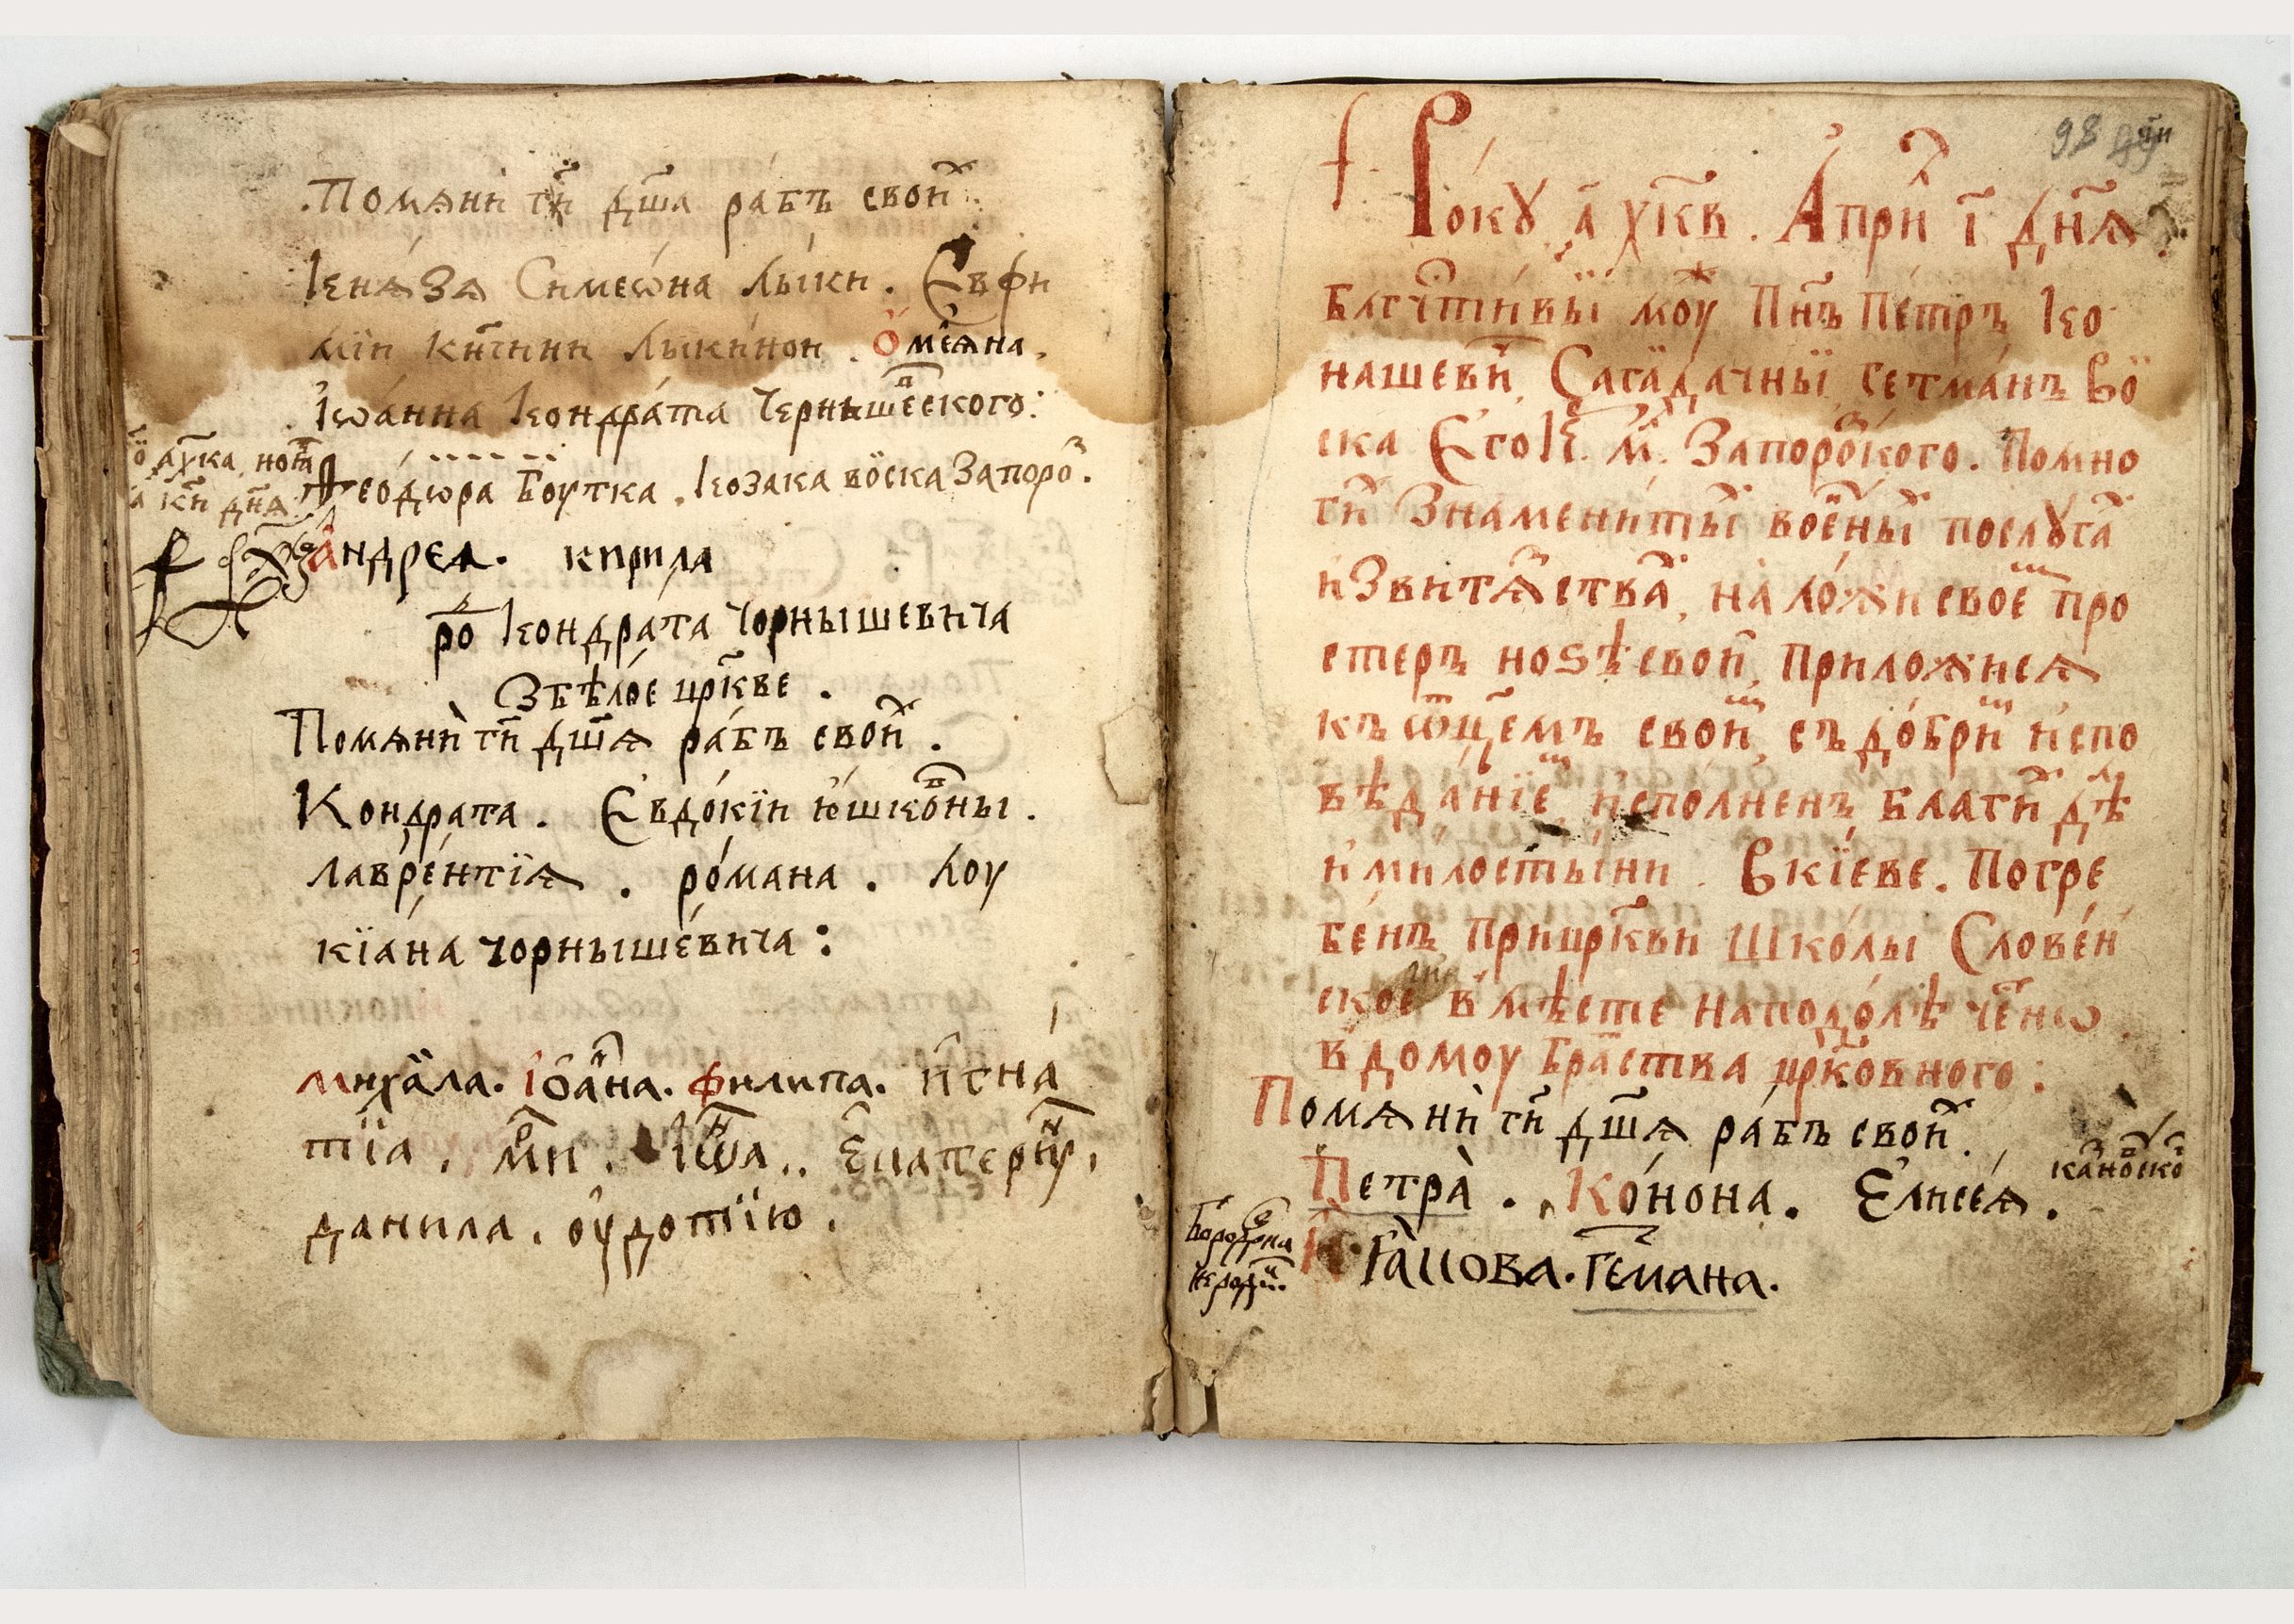 Помѧни ги҃ дш҃а рабъ свои҃х
Кнѧза Симеѡ́на Лы́ки. Евфи
міи Лы́киной. Омеѧна.
Іѡа́нна Кондра́та Чернышевского:
Ѳео́дѡра Боутка. Козака вӧска Запоро̑.
Андреѧ. кирила
ро҃ Кондра́та Чорнышевича
Збѣ́лое црк҃ве.
Помѧни̇̀ ги҃ дш҃ѧ ра́бъ свои҃х.
Кондрата. Евдо́кїи юшко́вны.
лавре́нтїѧ. ро́мана. Лоу
кїа́на чорныше́вича:
михаила. іоа́на. филипа. игна́
тїа. Екатерину,
данила. оудотїю.
98
Року ҂а҃ хк҃в. Апри҃л і҃ дн҃ѧ
Блгчⷭ҇ти́вый моу҃ж Пн҃ъ Пе́тръ Ко
нашеви҃ч, Сагада́чный, гетма́нъ Вӧ
ска Его К. М҃. Запоро̑зкого. Помно
ги҃х Знамени́ты҃х вое҃ны҃х послуга҃х
и Звитѧ҃ства҃х, на ло́жи свое҃м про
стеръ ноѕѣ свои҃, Приложисѧ
къ ѿц҃емъ свои҃м, съ до́бри҃м испо
вѣ́да́нїе҃м, исполненъ благи҃х дѣ҃л
и милосты́ни. Вкїеве. Погре
бе́нъ прицркви Шко́лы Слове́н
ское в мѣсте наподо́лѣ че҃сно
в домоу Бра҃ства црко́вного:
Помѧни̇̀ ги҃ дш҃ѧ ра́бъ свои҃х.
Петра̀. Ко́нона. Елисе́ѧ.
Іа́кова. Ге҃мана.